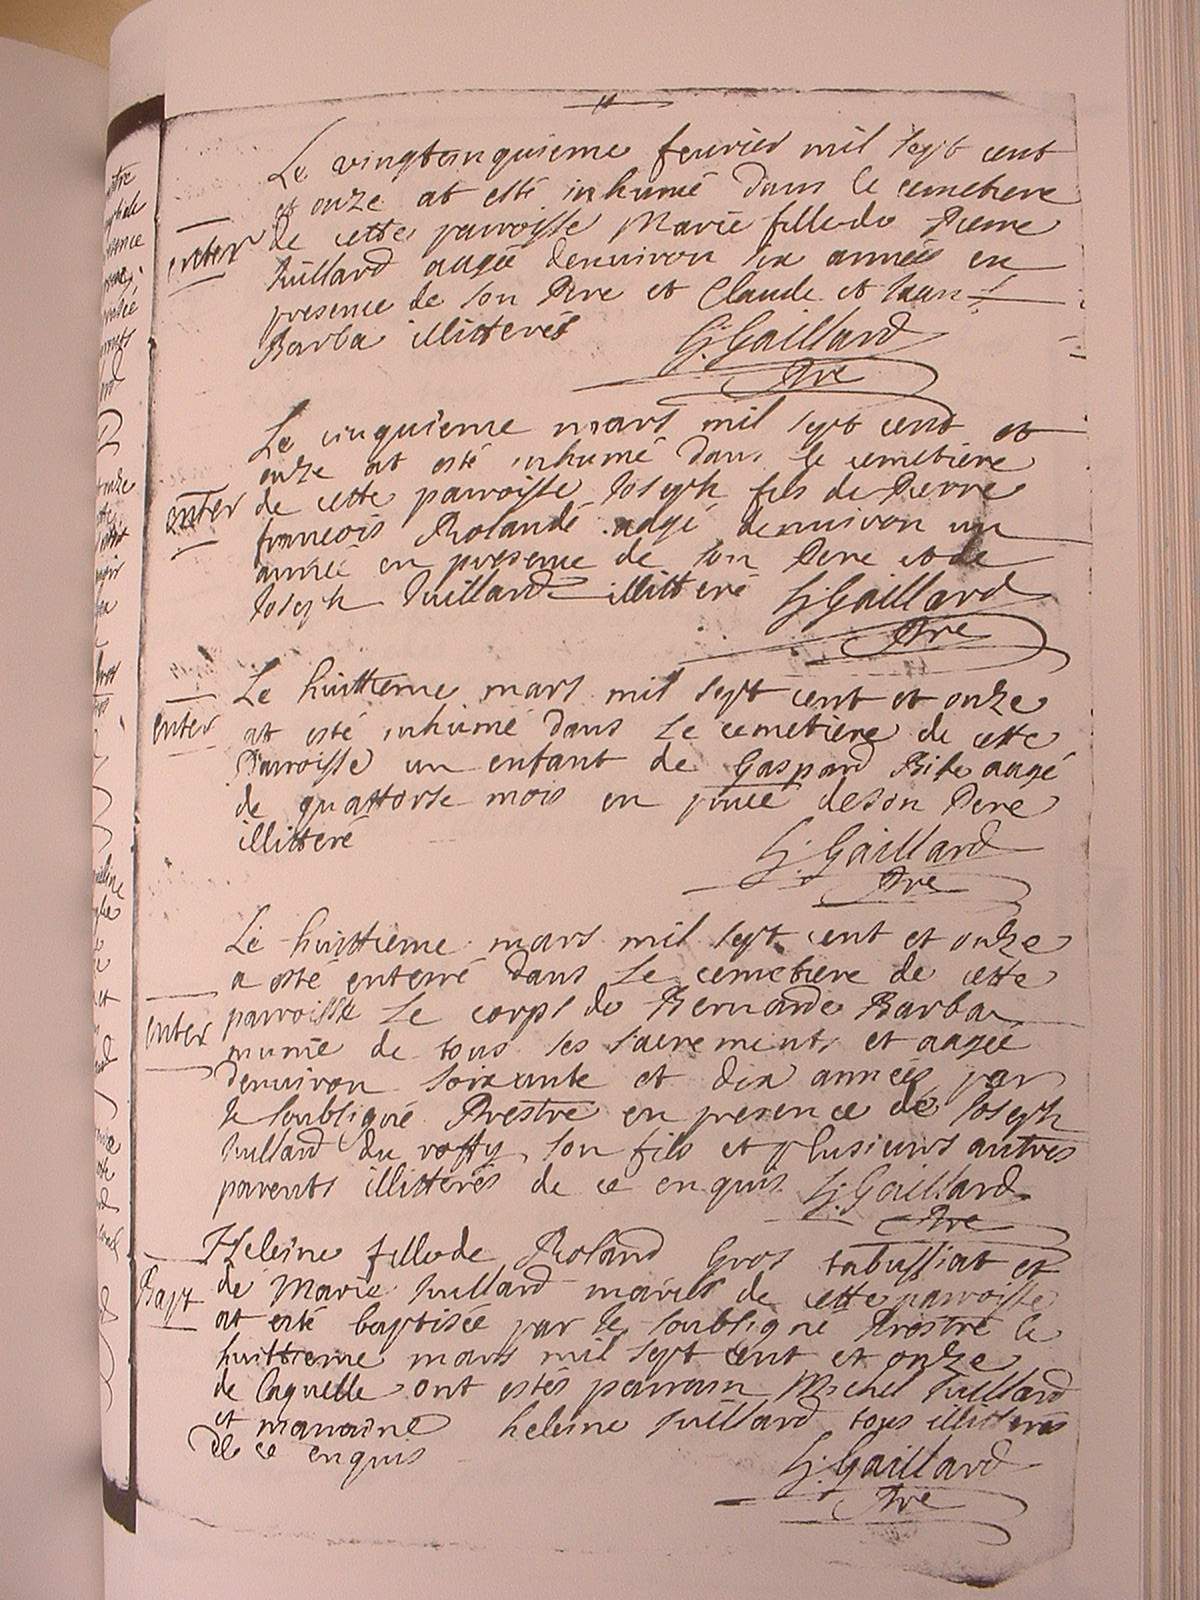 Le vingtcinquieme fevrier mil sept cent
et onze at esté inhumé dans le cemetiere
enter
de cette parroisse Marie fille de Pierre
Juillard aagée denuiron six années en
presence de son Pere et Claude et Jean
Barba illitterés
G: Gaillard
Pre
Le cinquieme mars mil sept cent et
onze at esté inhumé dans le cemetière
enter
de cette parroisse Joseph fils de Pierre
francois Rolande aagé denuiron un
année en presence de son Pere et de
Joseph Juillard illitteré G: Gaillard
Pre
Le huittieme mars mil sept cent et onze
enter
at esté inhumé dans le cemetière de cette
Parroisse un enfant de Gaspard aagé
de quattorse mois en de son Pere
illitteré
G: Gaillard
Pre
Le huittieme mars mil sept cent et onze
a esté enterré dans le cemetiere de cette
enter
parroisse Le corps de Bernarde Barba
munie de tous les sacrements et aagée
denuiron soixante et dix années par
le soubsigné Prestre en presence de Joseph
Juillard du son fils et plusieurs autres
parents illitterés de ce enquis G: Gaillard
Pre
Heleine fille de Roland Gros tabussiat et
Bapt
de Marie Juillard mariés de cette parroisse
at esté baptisée par le soubsigné Prestre le
huittieme mars mil sept cent et onze
de laquelle ont estés parrain Michel Juillard
et marraine heleine Juillard tous illitterés
de ce enquis
G: Gaillard
Pre